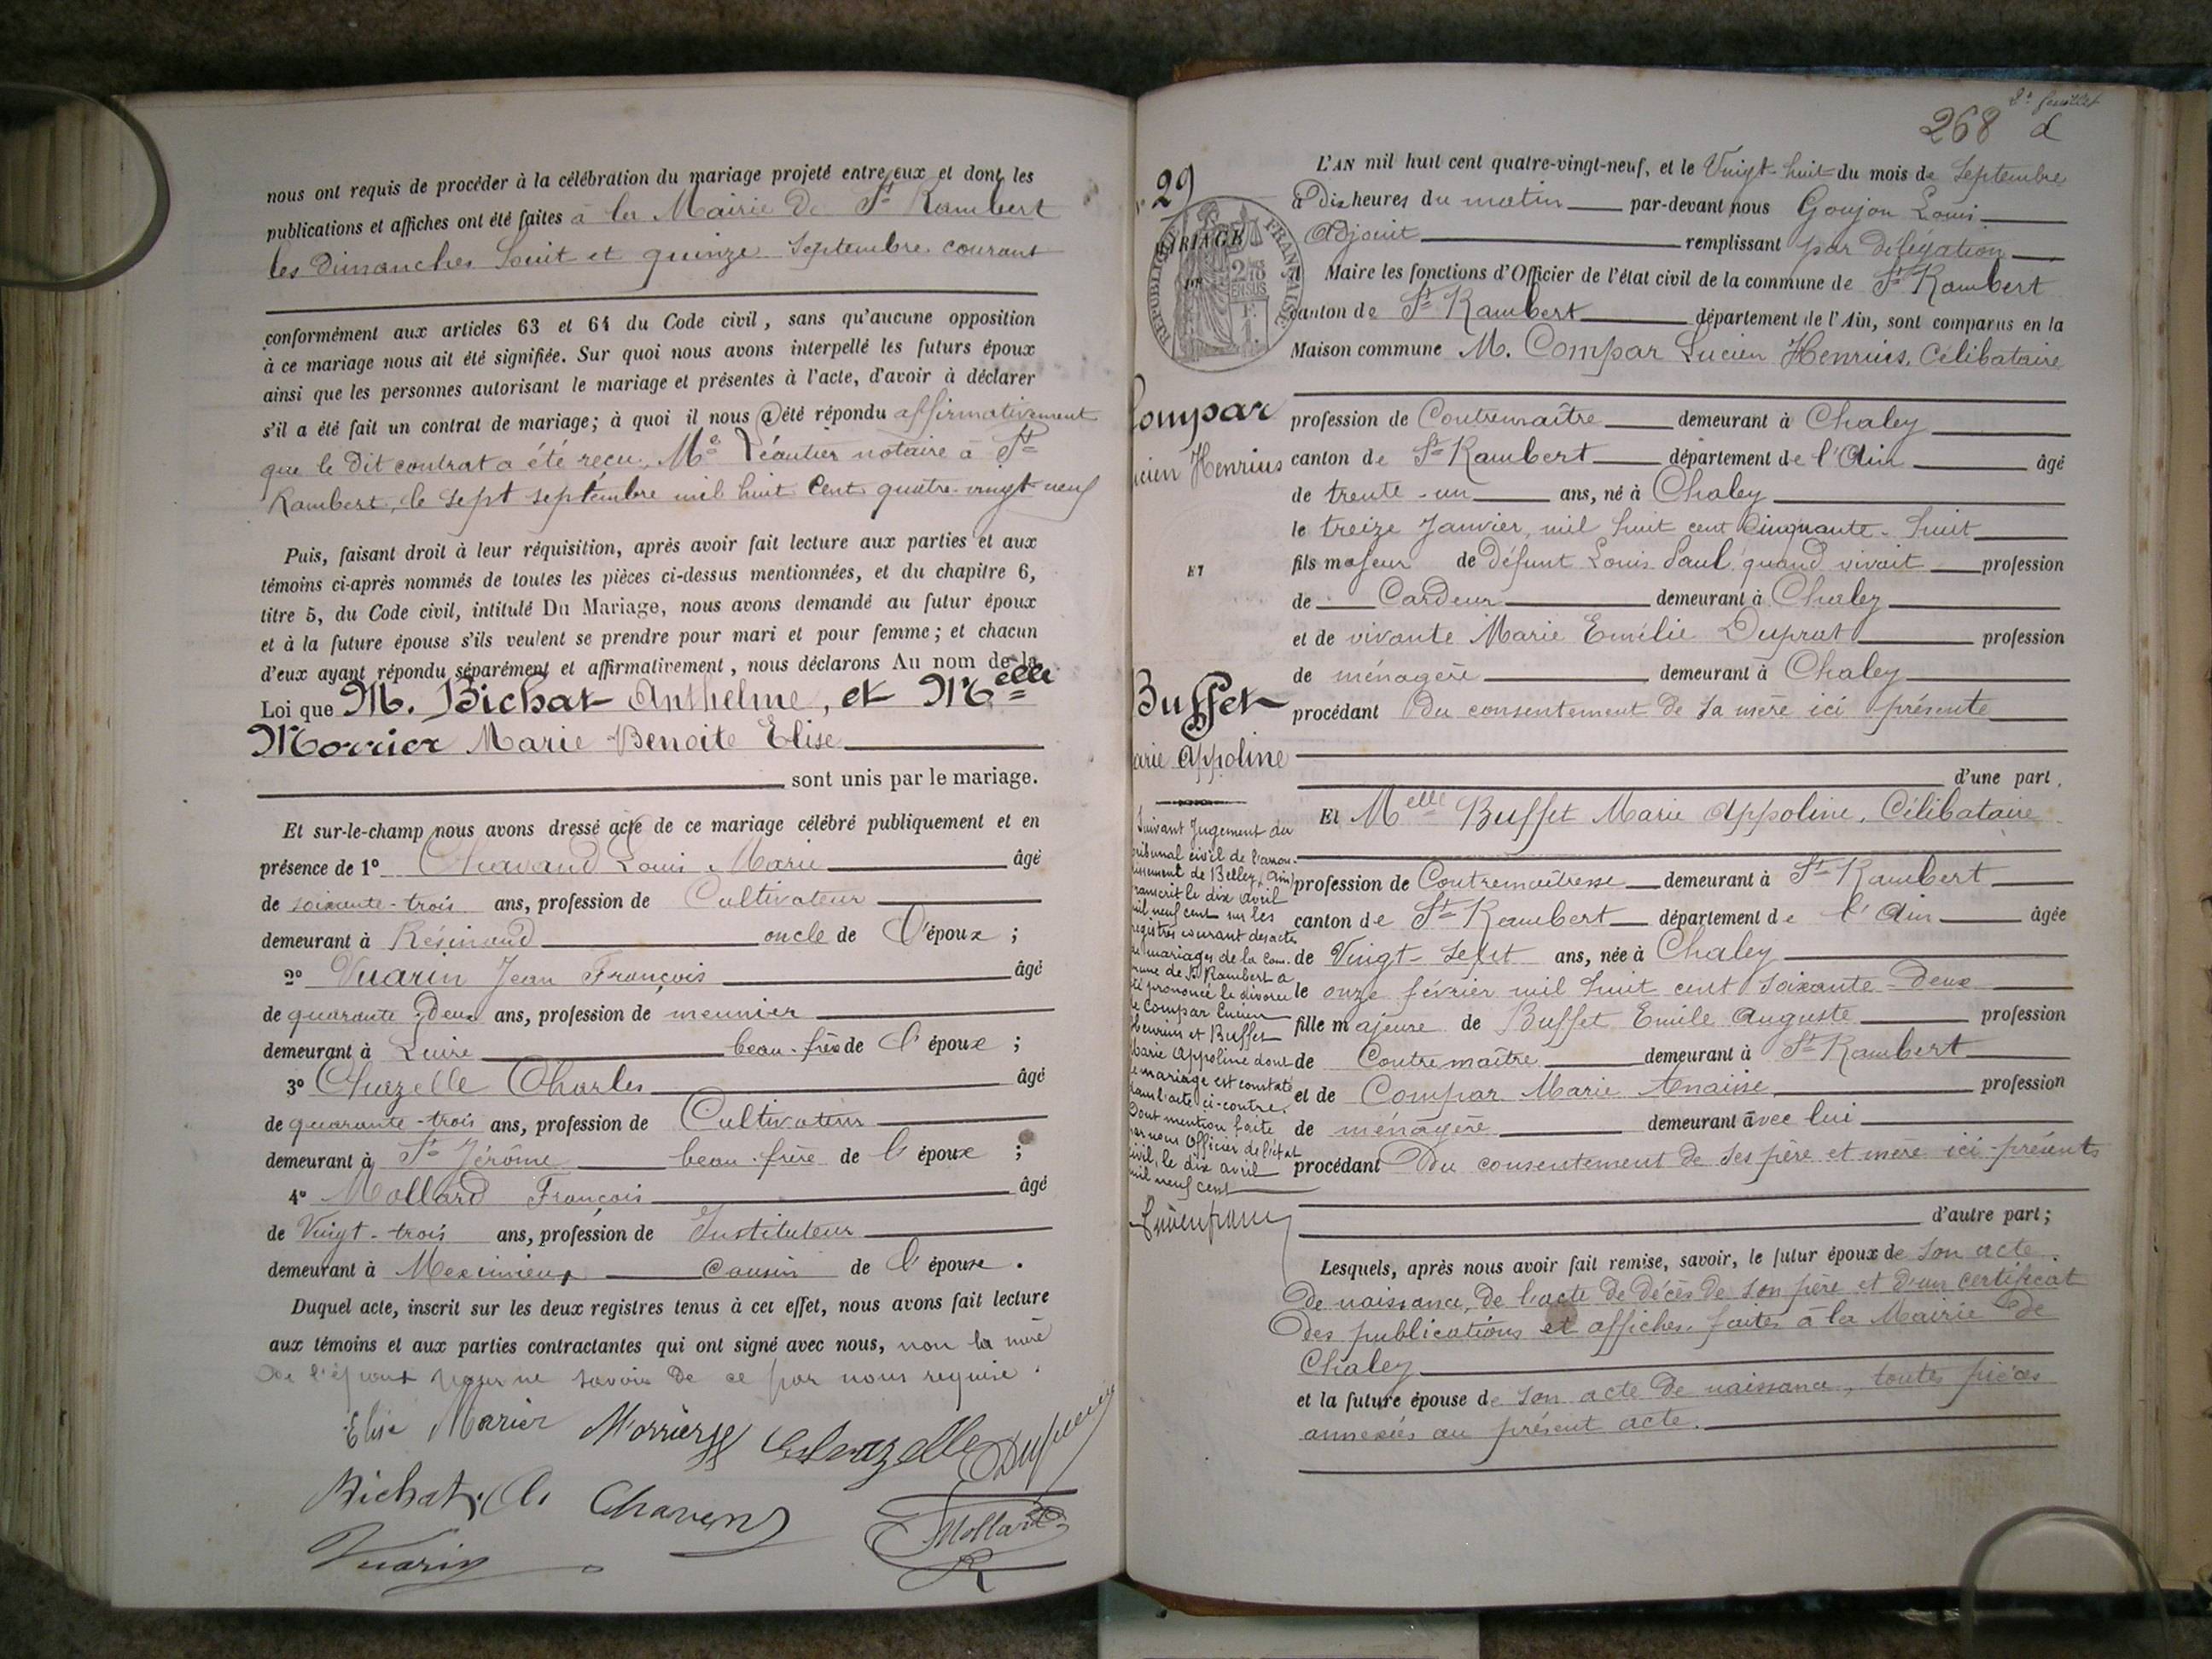 nous ont requis de procéder à la célébration du mariage projeté entre eux et dont les
publications et affiches ont été faites à la Mairie De St Rambert
les Dimanches huit et quinze Septembre courant
conformément aux articles 63 et 64 du Code civil, sans qu'aucune opposition
à ce mariage nous ait été signifiée. Sur quoi nous avons interpellé les futurs époux
ainsi que les personnes autorisant le mariage et présentes à l'acte, d'avoir à déclarer
s'il a été fait un contrat de mariage; à quoi il nous a été répondu affirmativement
que le Dit contrat a été reçu Me Léautier notaire à St
Rambert, le sept septembre mil huit cent quatre-vingt neuf
Puis, faisant droit à leur réquisition, après avoir fait lecture aux parties et aux
témoins ci-après nommés de toutes les pièces ci-dessus mentionnées, et du chapitre 6,
titre 5, du Code civil, intitulé Du Mariage, nous avons demandé au futur époux
et à la future épouse s'ils veulent se prendre pour mari et pour femme; et chacun
d'eux ayant répondu séparément et affirmativement, nous déclarons Au nom de la
Loi que M. Bichat Anthelme, et Melle
Morrier Marie Benoite Elise
sont unis par le mariage.
Et sur-le-champ nous avons dressé acte de ce mariage célébré publiquement et en
présence de 1° Chavand Louis Marie âgé
de soixante-trois ans, profession de Cultivateur
demeurant à Résinand oncle de l'époux;
2° Vuarin Jean François âgé
de quarante-deux ans, profession de meunier
demeurant à beau-frère de l'époux;
3° Chazelle Charles âgé
de quarante-trois ans, profession de Cultivateur
demeurant à St Jérôme beau-frère de l'époux;
4° Mollard François âgé
de Vingt-trois ans, profession de Instituteur
demeurant à Meximieux Cousin de l'épouse.
Duquel acte, inscrit sur les deux registres tenus à cet effet, nous avons fait lecture
aux témoins et aux parties contractantes qui ont signé avec nous, non la mère
De l'époux pour ne savoir De ce par nous requise.
Elise Morier Morrier Chazelle
Bichat. A. Chavand Mollard
Vuarin
2e feuillet
268 d
29
MARIAGE
DE
RÉPUBLIQUE FRANÇAISE
Compar
Lucien Henrius
ET
Buffet
Marie Appoline
Suivant Jugement du
tribunal civil de l'arron-
dissement de Belley (Ain)
transcrit le dix avril
mil neuf cent sur les
registres courant des actes
de mariages de la Com-
mune de St Rambert a
été prononcé le divorce
de Compar Lucien
Henrius et Buffet
Marie Appoline dont
le mariage est constaté
dans l'acte ci-contre.
Dont mention faite
par nous Officier de l'état
civil, le dix avril
mil neuf cent
L'AN mil huit cent quatre-vingt-neuf, et le Vingt-huit du mois de Septembre
à Dix heures du matin par-devant nous Goujon Louis
Adjoint remplissant par délégation
Maire les fonctions d'Officier de l'état civil de la commune de St Rambert
canton de St Rambert département de l'Ain, sont comparus en la
Maison commune M. Compar Lucien Henrius, Célibataire
profession de Contremaître demeurant à Chaley
canton de St Rambert département de l'Ain âgé
de trente-un ans, né à Chaley
le treize Janvier, mil huit cent cinquante-huit
fils majeur de défunt Louis Paul quand vivait profession
de Cardeur demeurant à Chaley
et de vivante Marie Emélie Duprat profession
de ménagère demeurant à Chaley
procédant Du consentement De sa mère ici présente
d'une part.
Et Melle Buffet Marie Appoline, Célibataire
profession de Contremaîtresse demeurant à St Rambert
canton de St Rambert département de l'Ain âgée
de Vingt-Sept ans, née à Chaley
le onze février mil huit cent soixante-Deux
fille majeure de Buffet Emile Auguste profession
de Contremaître demeurant à St Rambert
et de Compar Marie Anaïsse profession
de ménagère demeurant avec lui
procédant Du consentement De ses père et mère ici présents
d'autre part;
Lesquels, après nous avoir fait remise, savoir, le futur époux de son acte
De naissance, De l'acte De Décès De son père et D'un certificat
Des publications et affiches faites à la Mairie De
Chaley
et la future épouse de son acte De naissance, toutes pièces
annexées au présent acte.